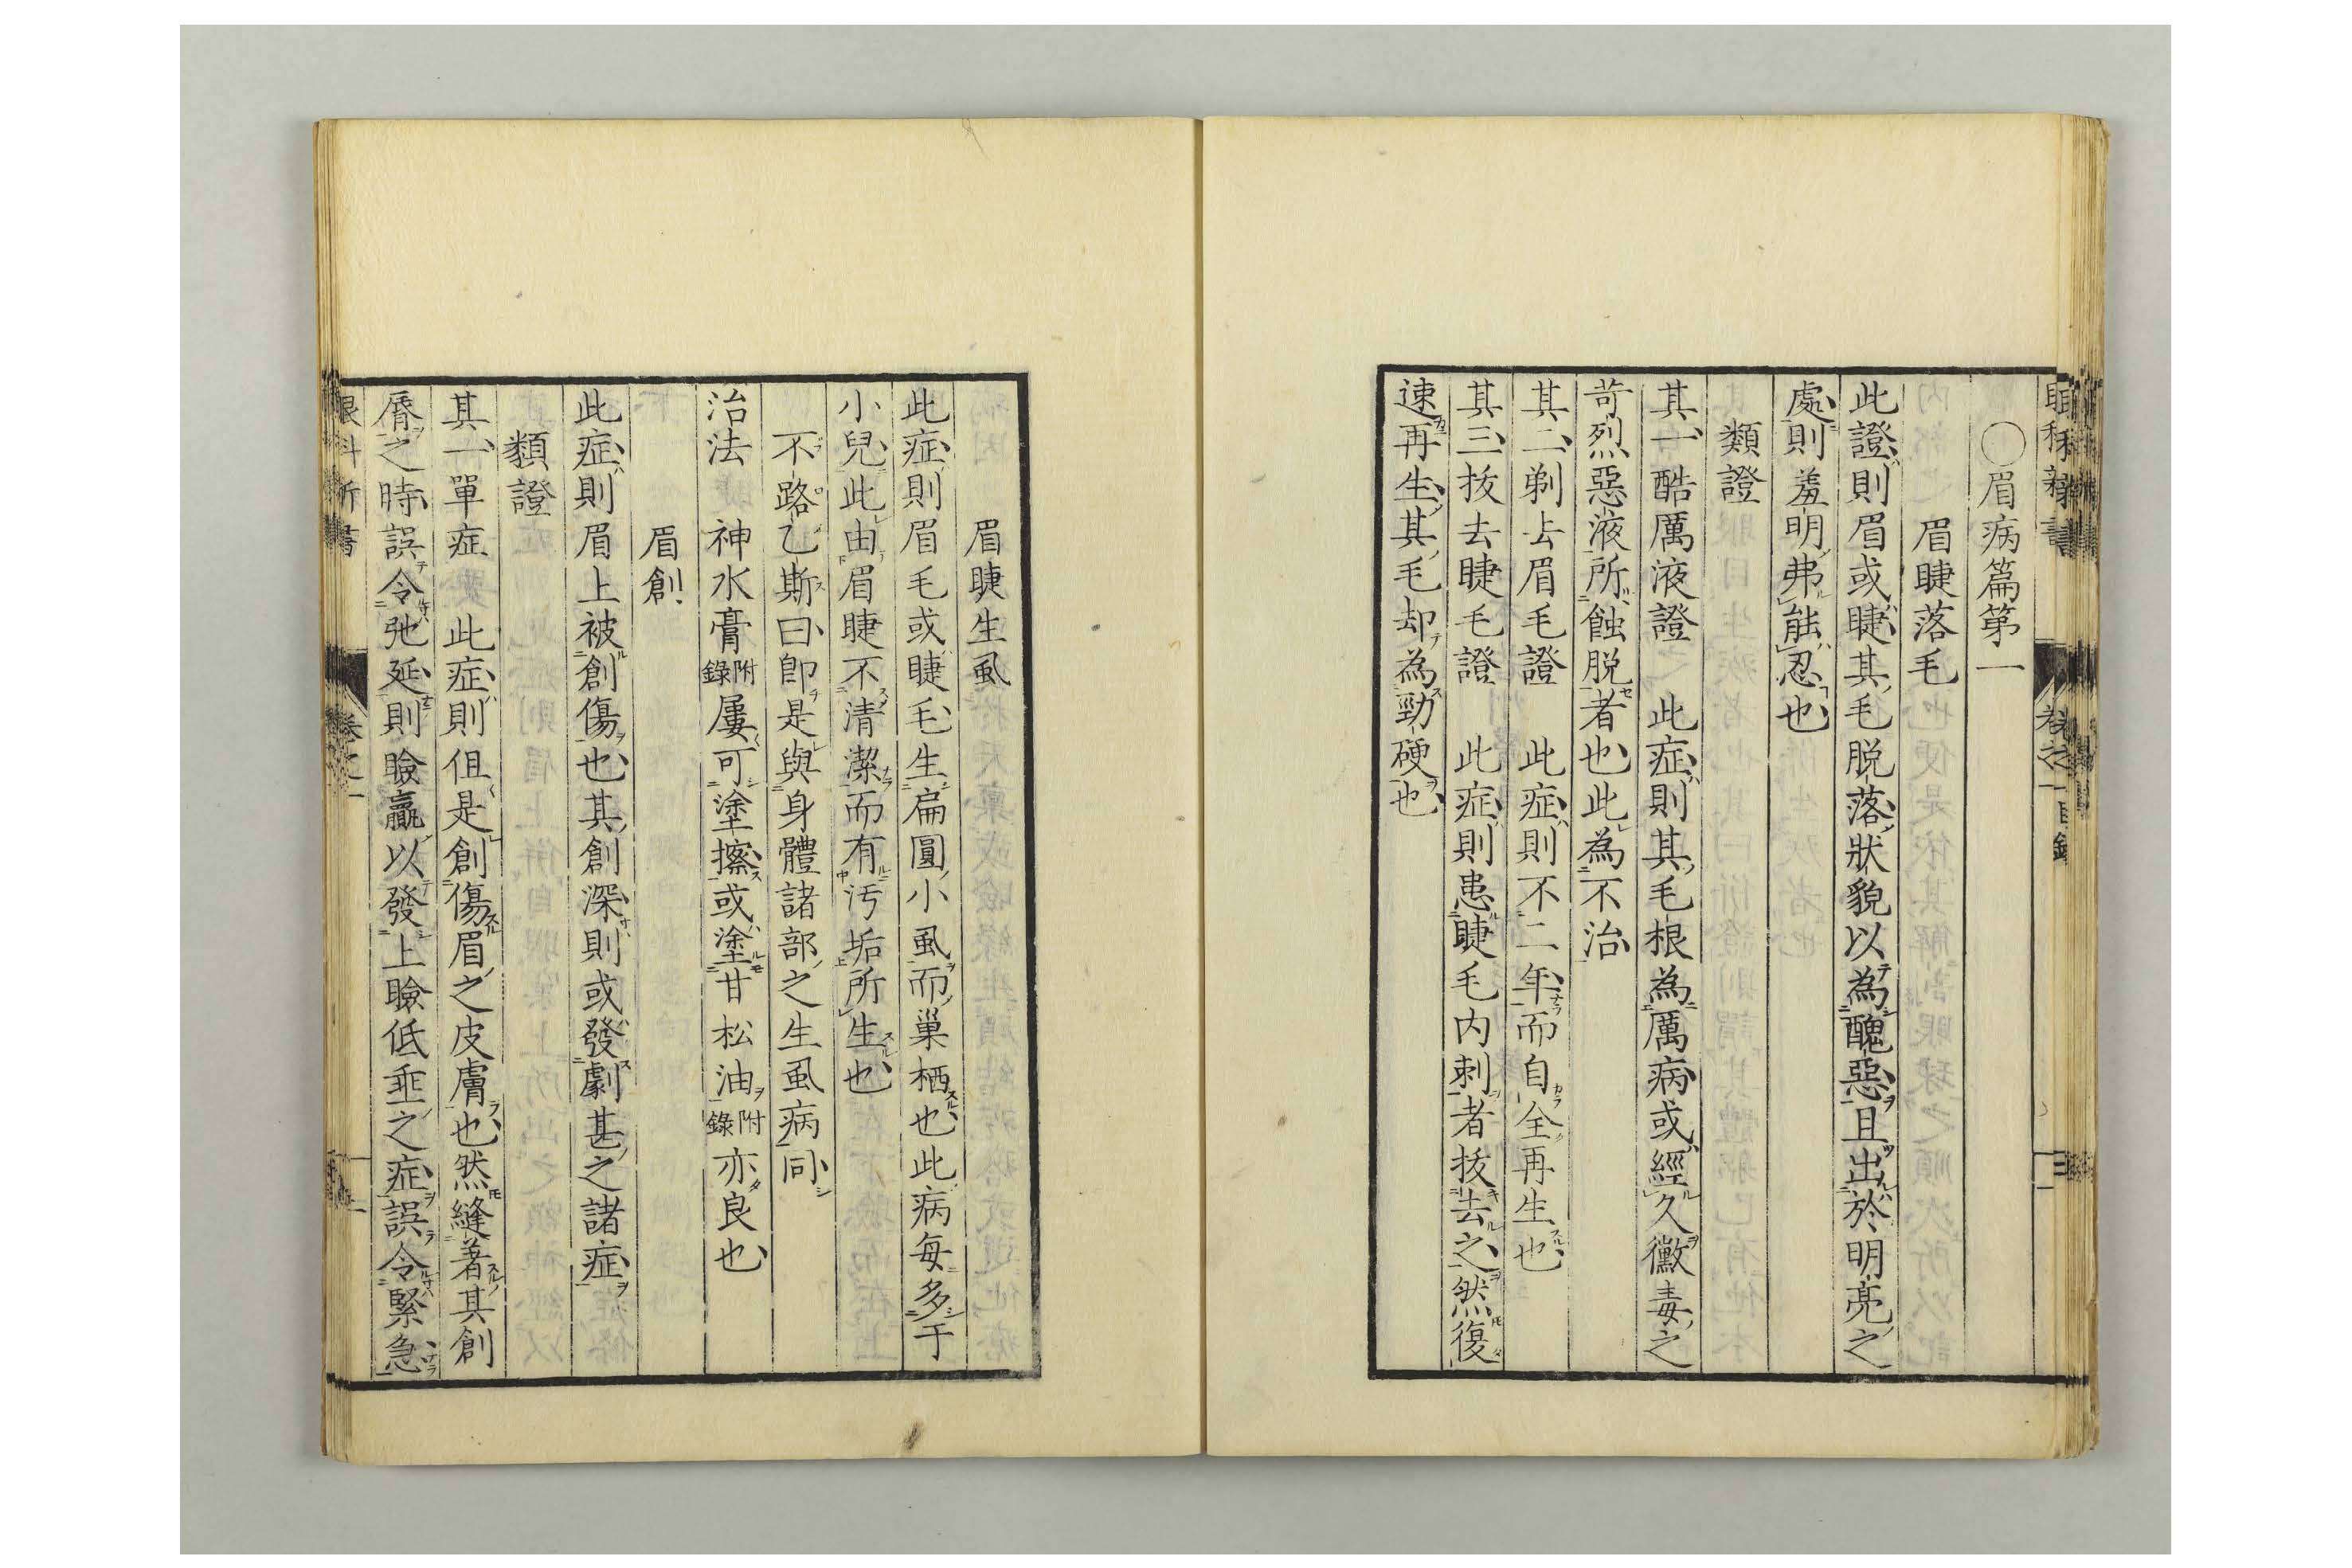 ○眉病篇第一
眉睫落毛
此證則眉或睫其毛脱落狀貌以為醜惡且出於明亮之
處則羞明弗能忍也
類證
其一酷厲液證 此症則其毛根為厲病或經久黴毒之
苛烈惡液所蝕脱者也此為不治
其二剃去眉毛證 此症則不二年而自全再生也
其三抜去睫毛證 此症則患睫毛内刺者抜去之然復
速再生其毛却為勁硬也
眉睫生虱
此症則眉毛或睫毛生扁圓小虱而巢栖也此病毎多于
小兒此由眉睫不清潔而有汚垢所生也
不路乙斯曰卽是與身體諸部之生虱病同
治法 神水膏附錄屢可塗擦或塗甘松油附錄亦良也
眉創
此症則眉上被創傷也其創深則或發劇甚之諸症
類證
其一單症 此症則但是創傷眉之皮膚也然縫著其創
脣之時誤令弛延則瞼贏以發上瞼低垂之症誤令緊急